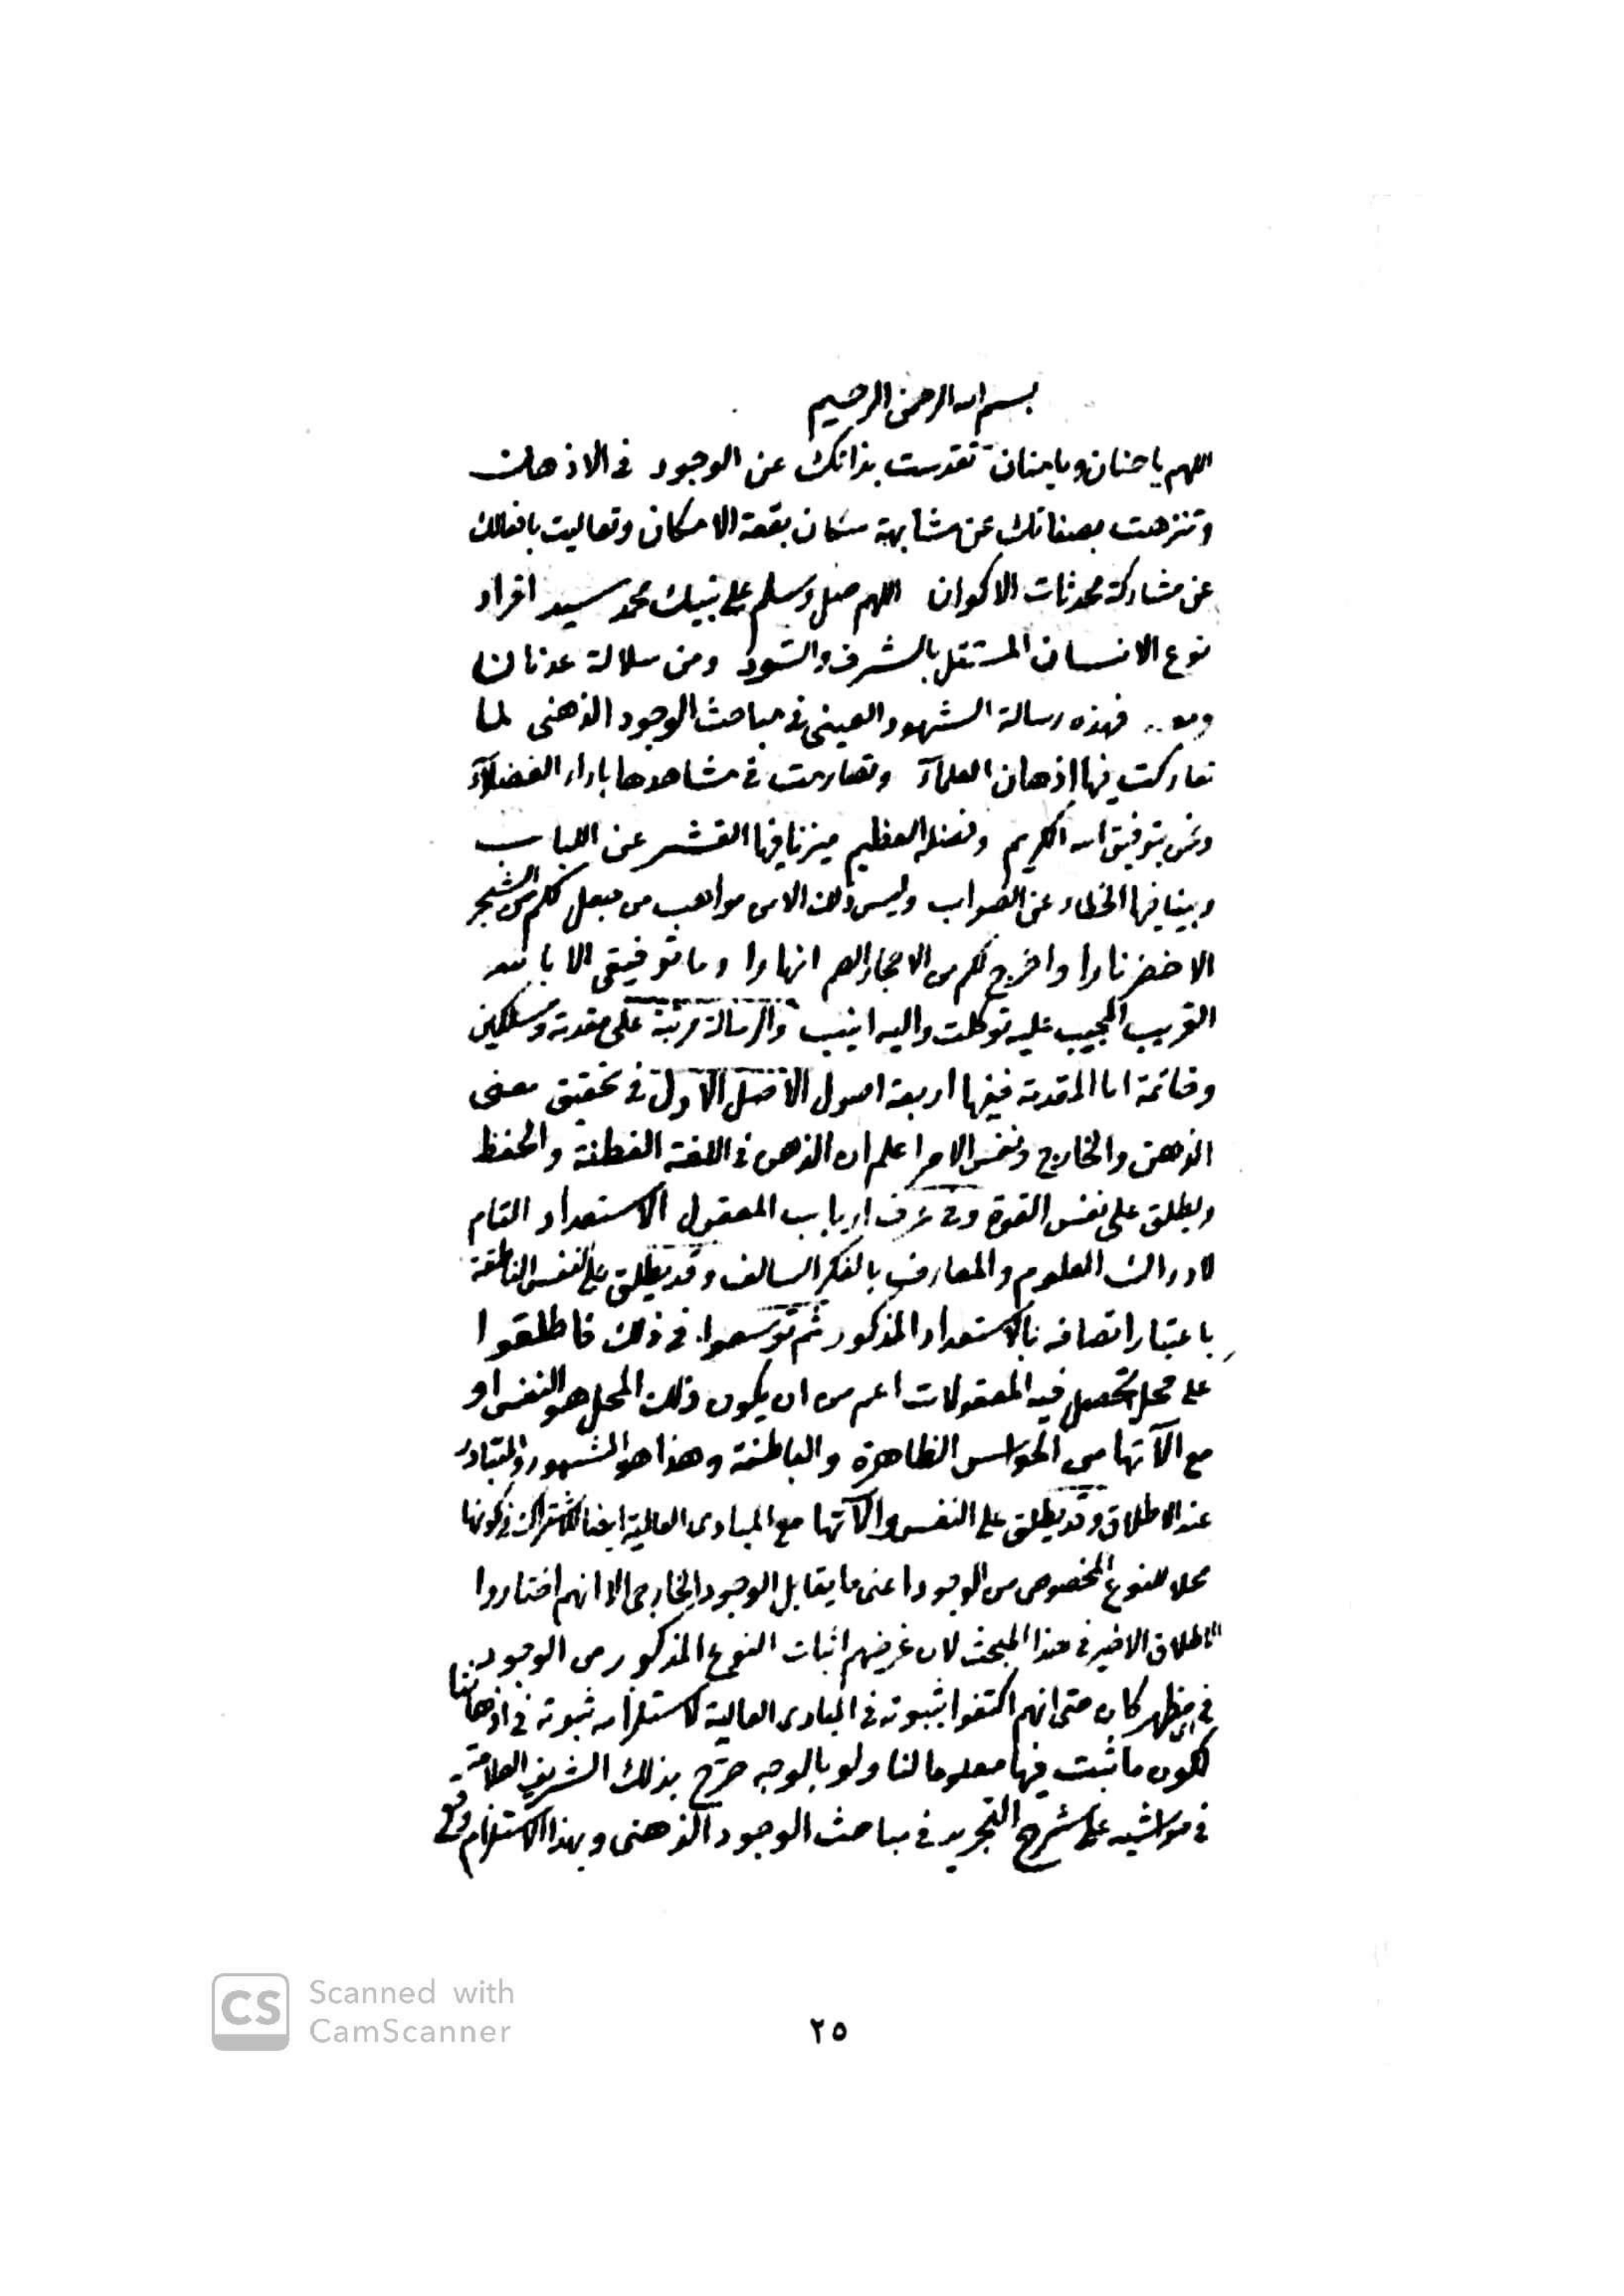 بسم الله الرحمن الرحيم
اللهم يا حنان ويا منان تقدست بذاتك عن الوجود فى الاذهان
وتنزهت بصفاتك عن مشابهة سكان بقعة الامكان وتعاليت بافعالك
عن مشاركة محدثات الاكوان اللهم صل وسلم على نبيك محمد سيد افراد
نوع الانسان المستقل بالشرف والسؤدد ومن سلالة عدنان
وبعد فهذه رسالة الشهود العينى فى مباحث الوجود الذهنى لما
تعاركت فيها اذهان العلمآء وتصادمت فى مشاهدها اراء الفضلآء
ونحن بتوفيق الله الكريم وفضله العظيم ميزنا فيها القشر عن اللباب
وبينا فيها الخطاء عن الصواب وليس ذلك الا من مواهب من جعل لكم من الشجر
الاخضر نارا واخرج لكم من الاحجار انهارا وما توفيقى الا بالله
القريب المجيب عليه توكلت واليه انيب والرسالة مرتبة على مقدمة ومسلكين
وخاتمة اما المقدمة ففيها اربعة اصول الاصل الاول فى تحقيق معنى
الذهن والخارج ونفس الامر اعلم ان الذهن فى اللغة الفطنة والحفظ
ويطلق على نفس القوة وفى عرف ارباب المعقول الاستعداد التام
لادراك العلوم والمعارف بالفكر السالف وقد يطلق على النفس الناطقة
باعتبار اتصافه بالاستعداد المذكور ثم توسعوا فى ذلك فاطلقوا
على محل تحصل فيه المعقولات اعم من ان يكون ذلك المحل هو النفس او
مع الآتها من الحواس الظاهرة والباطنة وهذا هو المشهور والمتبادر
عند الاطلاق وقد يطلق على النفس والآتها مع المبادى العالية ايضا للاشتراك فى كونها
محلا للنوع المخصوص من الوجود اعنى ما يقابل الوجود الخارجى الا انهم اختاروا
الاطلاق الاخير فى هذا المبحث لان غرضهم اثبات النوع المذكور من الوجود
فى اى مظهر كان حتى انهم اكتفوا بثبوته فى المبادى العالية لاستلزامه ثبوته فى اذهاننا
لكون ما ثبت فيها معلوما لنا ولو بالوجه صرح بذلك الشريف العلامة
فى حواشيه على شرح التجريد فى مباحث الوجود الذهنى وبهذا الاستلزام وقع
٢٥
CS Scanned with
CamScanner